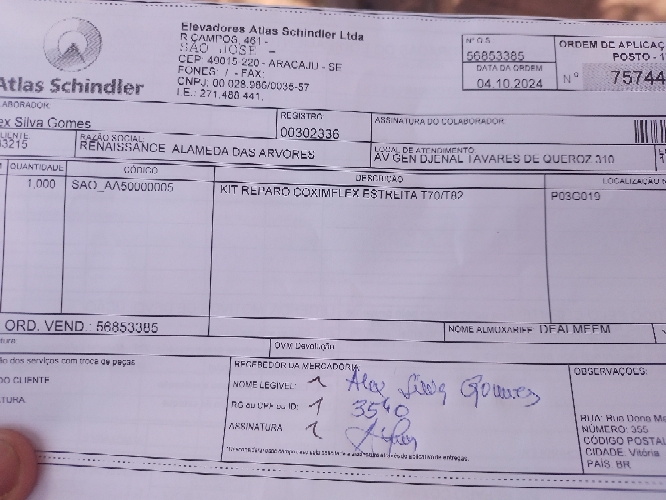 Elevadores Atlas Schindler Ltda
R CAMPOS, 461 -
SÃO JOSE -
CEP 49015-220 - ARACAJU - SE
FONES: / - FAX:
CNPJ: 00.028.986/0035-57
I.E.: 271.488.441.
Atlas Schindler
Nº O.S.
56853385
DATA DA ORDEM
04.10.2024
ORDEM DE APLICAÇ
POSTO - 1
Nº 75744
LABORADOR
ex Silva Gomes
REGISTRO
00302336
ASSINATURA DO COLABORADOR
LIENTE
33215
RAZÃO SOCIAL:
RENAISSANCE ALAMEDA DAS ARVORES
LOCAL DE ATENDIMENTO
AV GEN DJENAL TAVARES DE QUEROZ 310
QUANTIDADE
CÓDIGO
DESCRIÇÃO
LOCALIZAÇÃO N
1,000
SAO_AA50000005
KIT REPARO COXIMFLEX ESTREITA T70/T82
P03G019
ORD. VEND.: 56853385
NOME ALMOXARIFE
OVM Devolução
ão dos serviços com troca de peças
DO CLIENTE
TURA
RECEBEDOR DA MERCADORIA
NOME LEGÍVEL: Alex Silva Gomes
RG ou CPF ou ID: 3540
ASSINATURA
OBSERVAÇÕES:
RUA: Rua Dona Ma
NÚMERO: 355
CÓDIGO POSTAL
CIDADE: Vitória
PAÍS: BR